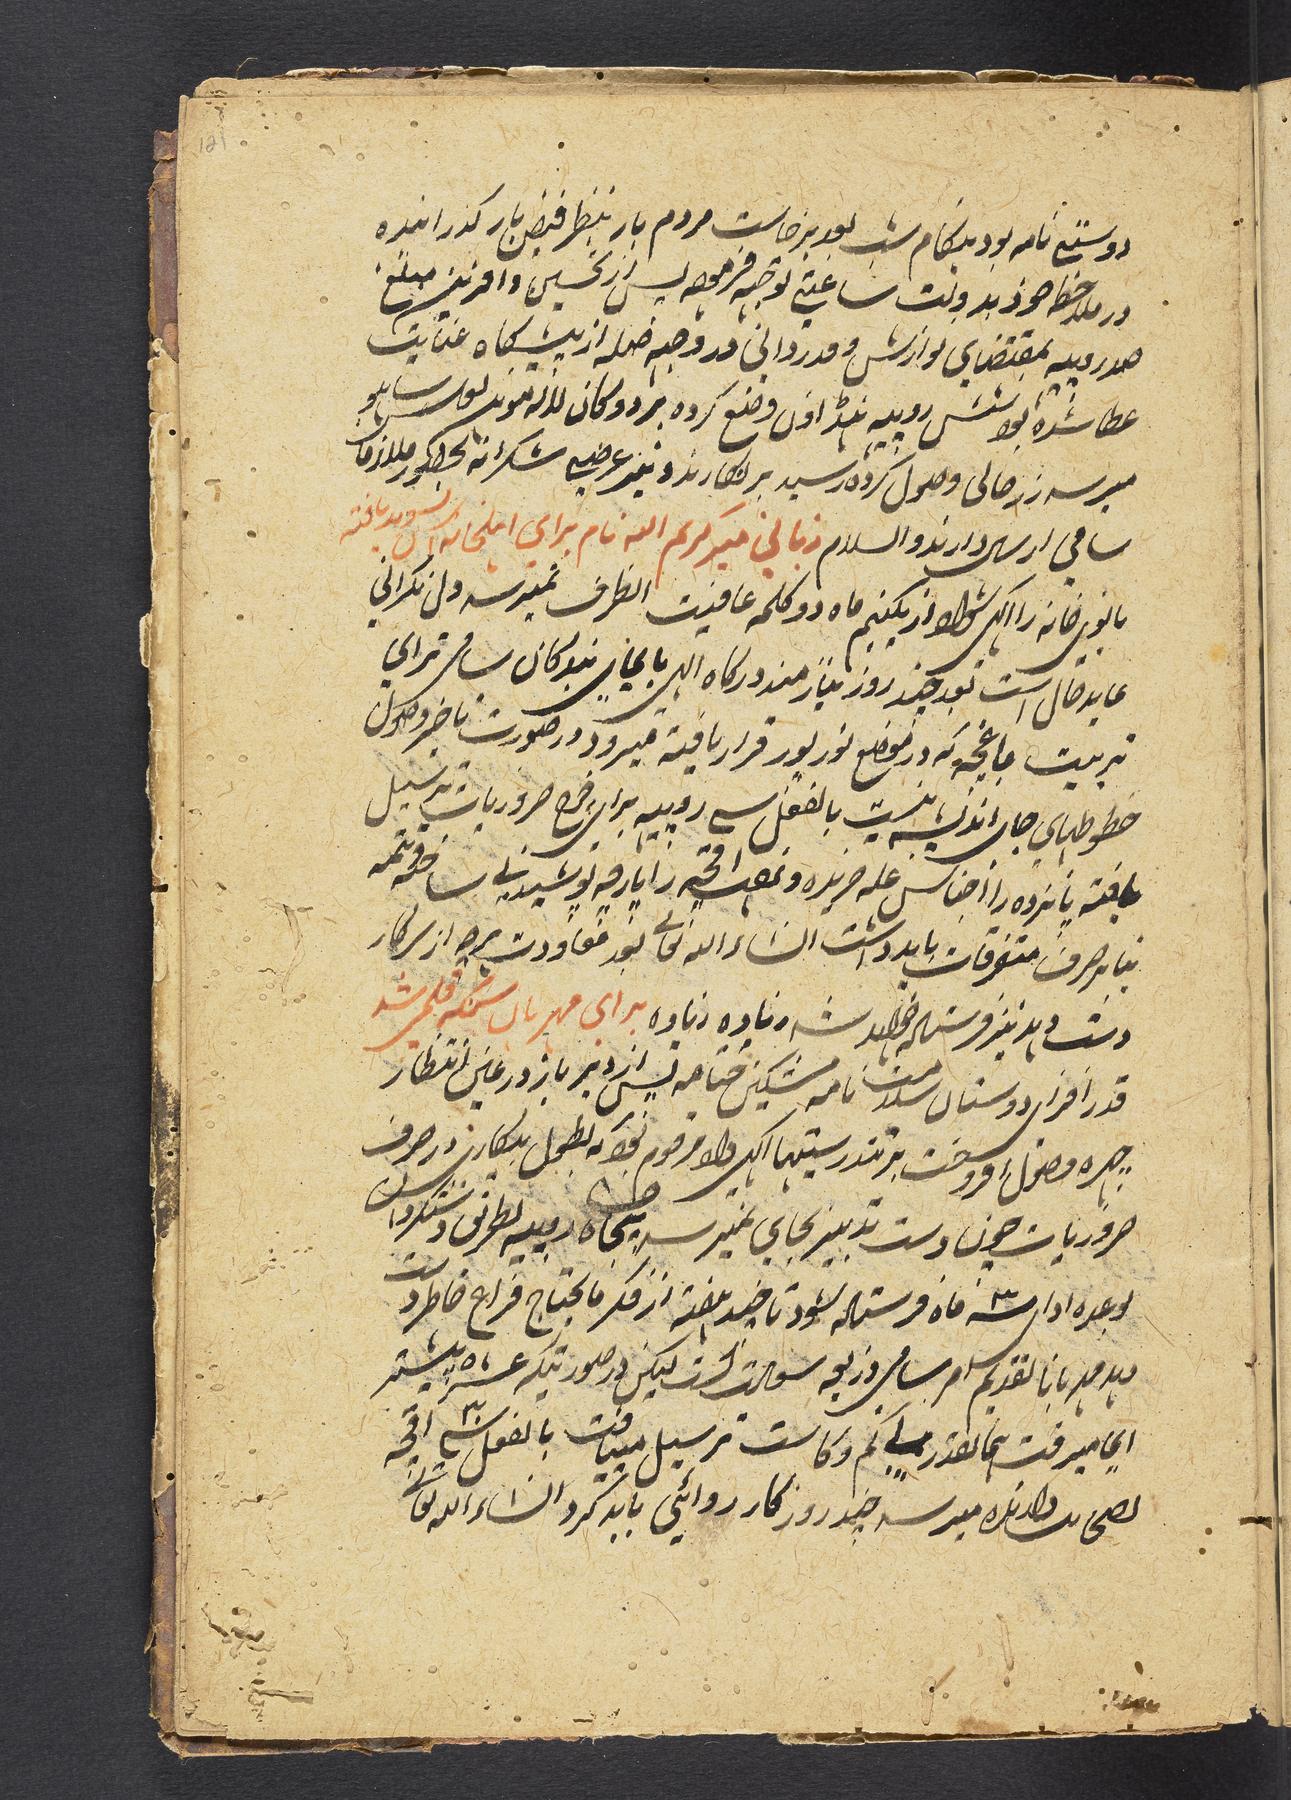 دوستیع نامه بود هنگام شب بعد برخاست مردم بار بنظر فیض بار گذرانده
در ملاحظه حوذ بدولت ساعتی توجه فرموده پس از تحسین و آفرین مبلغ
صد روپیه بمقتضای نوازش و قدردانی در وجه صله از پیشگاه عنایت
عطا شده شش روپیه هنڈاون وضع کرده بر دوکان لاله
میرسد زر حالی وصول کرده رسید بر نگارند و نیز عرضیه شکرانه بحضور ملازمان
سامی ارسال دارند والسلام زبانی میر کرم الله نام برای اهلخانه اش تسوید یافته
بانوی خانه را آگهی شواد از یکنیم ماه دو کلمه عافیت الطرف نمیرسد دل نگرانی
عاید حال است بعد چند روز نیازمند درگاه الهی بایمای بندگان سامی برای
تربیت باغچه که در موضع نورپور قرار یافته میرود در صورت تاخیر وصول
خطوطهای جای اندیشه نیست بالفعل سی روپیه برای خرج ضروریات ترسیل
یافته پانزده را اجناس غله خریده و نصف اقچه را پارچه پوشیدنی ساخته تتمه
بنابر صرف متفرقات باید داشت انشاء الله تعالی بعد معاودت هر چه از سرکار
دست دهد نیز فرستاده خواهد شد زیاده زیاده برای مهربان سنگه قلمی شد
قدر افزای دوستان سلامت نامه مشکین ختامه پس از دیر باز در عین انتظار
چهره وصول افروخت بر تندرستیها آگهی والا مرقوم بود که بطول بیکاری در صرف
ضروریات چون دست تدبیر بجای نمیرسد پنجاه روپیه بطریق دستگردان
بوعده ادای سه ماه فرستاده شود تا چند هفته از فکر مایحتاج فراغ خاطر دست
دهد مهربانا تقدیم امر سامی ذریعه سعادت است لیکن در صورتیکه عشره پیشتر
ایما میرفت همانقدر بی کم و کاست ترسیل مییافت بالفعل سی اقچه
والا میرسد چند روز کار روائی باید کرد انشاء الله تعالی